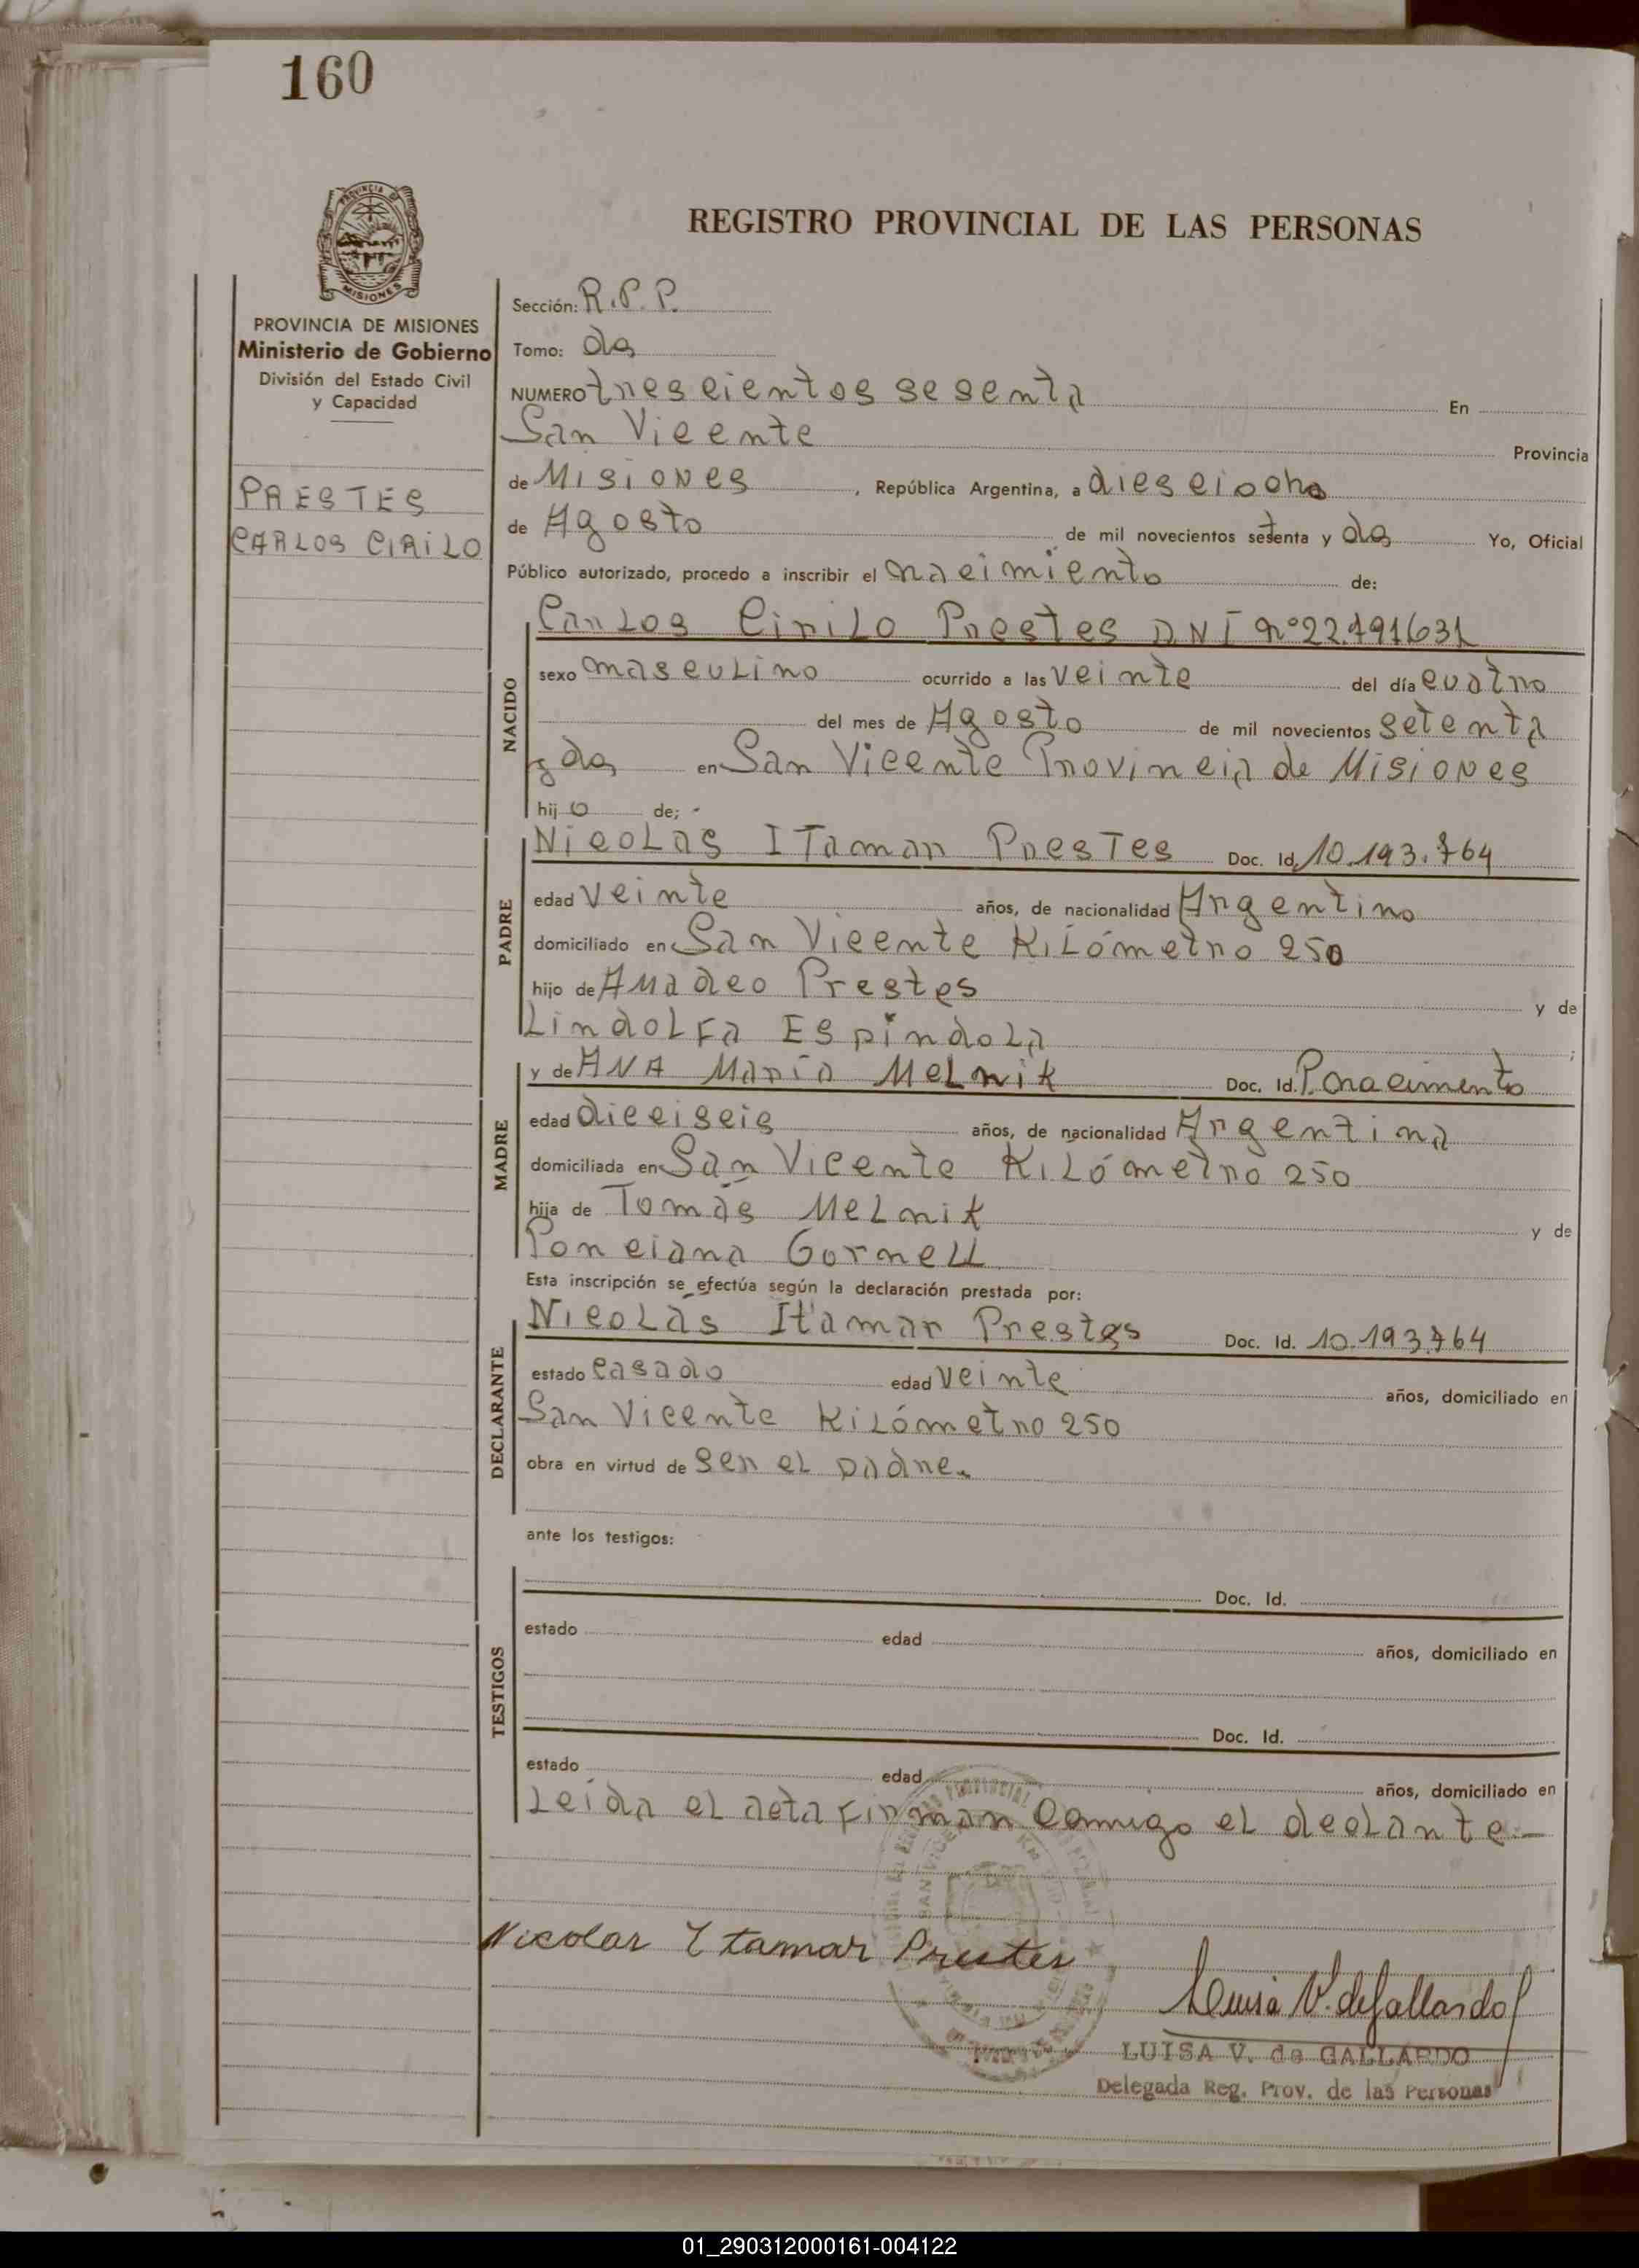 160
PROVINCIA DE MISIONES
Ministerio de Gobierno
División del Estado Civil
y Capacidad
PRESTES
CARLOS CIRILO
REGISTRO PROVINCIAL DE LAS PERSONAS
Sección: R.P.P.
Tomo: dos
NUMERO trescientos sesenta En
San Vicente Provincia
de Misiones, República Argentina, a diesciocho
de Agosto de mil novecientos setenta y dos Yo, Oficial
Público autorizado, procedo a inscribir el nacimiento de:
NACIDO
Carlos Cirilo Prestes DNI nº 22.791631
sexo masculino ocurrido a las veinte del día cuatro
del mes de Agosto de mil novecientos setenta
y dos en San Vicente Provincia de Misiones
hijo de;
PADRE
Nicolas Itamar Prestes Doc. Id. 10.193.764
edad veinte años, de nacionalidad Argentino
domiciliado en San Vicente Kilómetro 250
hijo de Amadeo Prestes y de
Lindolfa Espíndola ;
MADRE
y de ANA María Melnik Doc. Id. P. nacimento
edad dieciseis años, de nacionalidad Argentina
domiciliada en San Vicente Kilómetro 250
hija de Tomás Melnik y de
Ponciana Gornell
Esta inscripción se efectúa según la declaración prestada por:
DECLARANTE
Nicolás Itamar Prestes Doc. Id. 10.193.764
estado casado edad veinte años, domiciliado en
San Vicente Kilómetro 250
obra en virtud de ser el padre.
ante los testigos:
TESTIGOS
Doc. Id.
estado edad años, domiciliado en
Doc. Id.
estado edad años, domiciliado en
Leída el acta firman Comigo el declante.—
Nicolas Itamar Prestes
Luisa V. de Gallardo
LUISA V. de GALLARDO
Delegada Reg. Prov. de las Personas
01_290312000161-004122